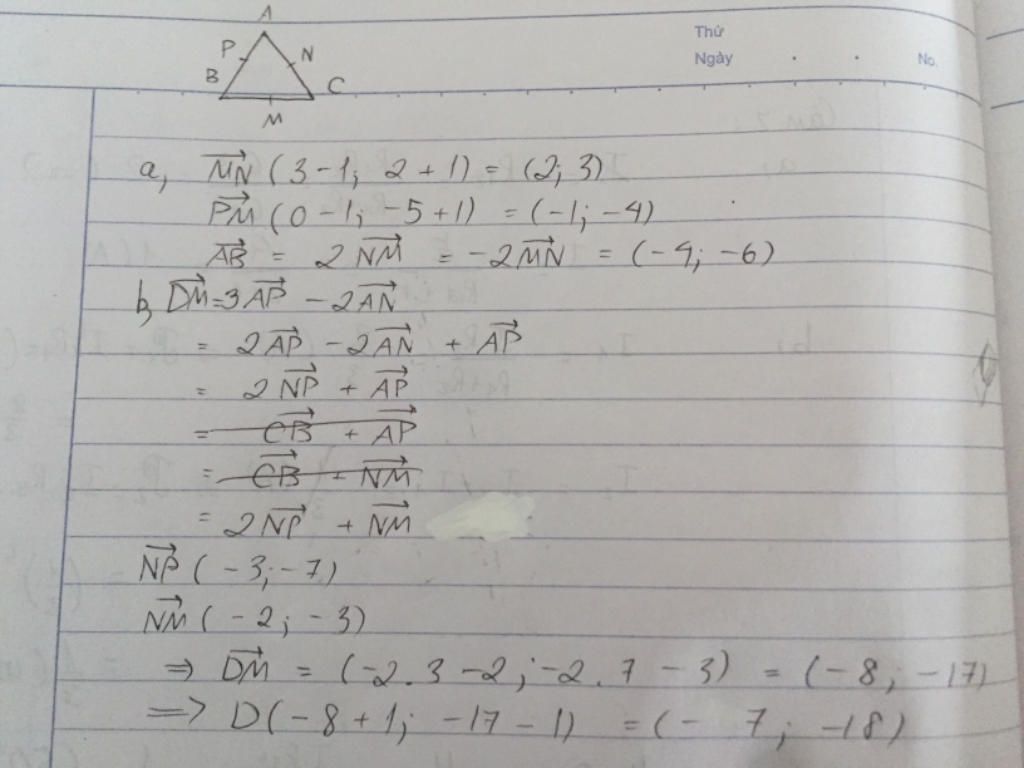 A
P N
B C
M
Thứ
Ngày . . No.
a, MN⃗ (3-1; 2+1) = (2; 3)
PM⃗ (0-1; -5+1) = (-1; -4)
AB⃗ = 2NM⃗ = -2MN⃗ = (-4; -6)
b, DM⃗ = 3AP⃗ - 2AN⃗
= 2AP⃗ - 2AN⃗ + AP⃗
= 2NP⃗ + AP⃗
= CB⃗ + AP⃗
= CB⃗ + NM⃗
= 2NP⃗ + NM⃗
NP⃗ (-3; -7)
NM⃗ (-2; -3)
⇒ DM⃗ = (-2.3-2; -2.7-3) = (-8; -17)
⇒ D(-8+1; -17-1) = (-7; -18)